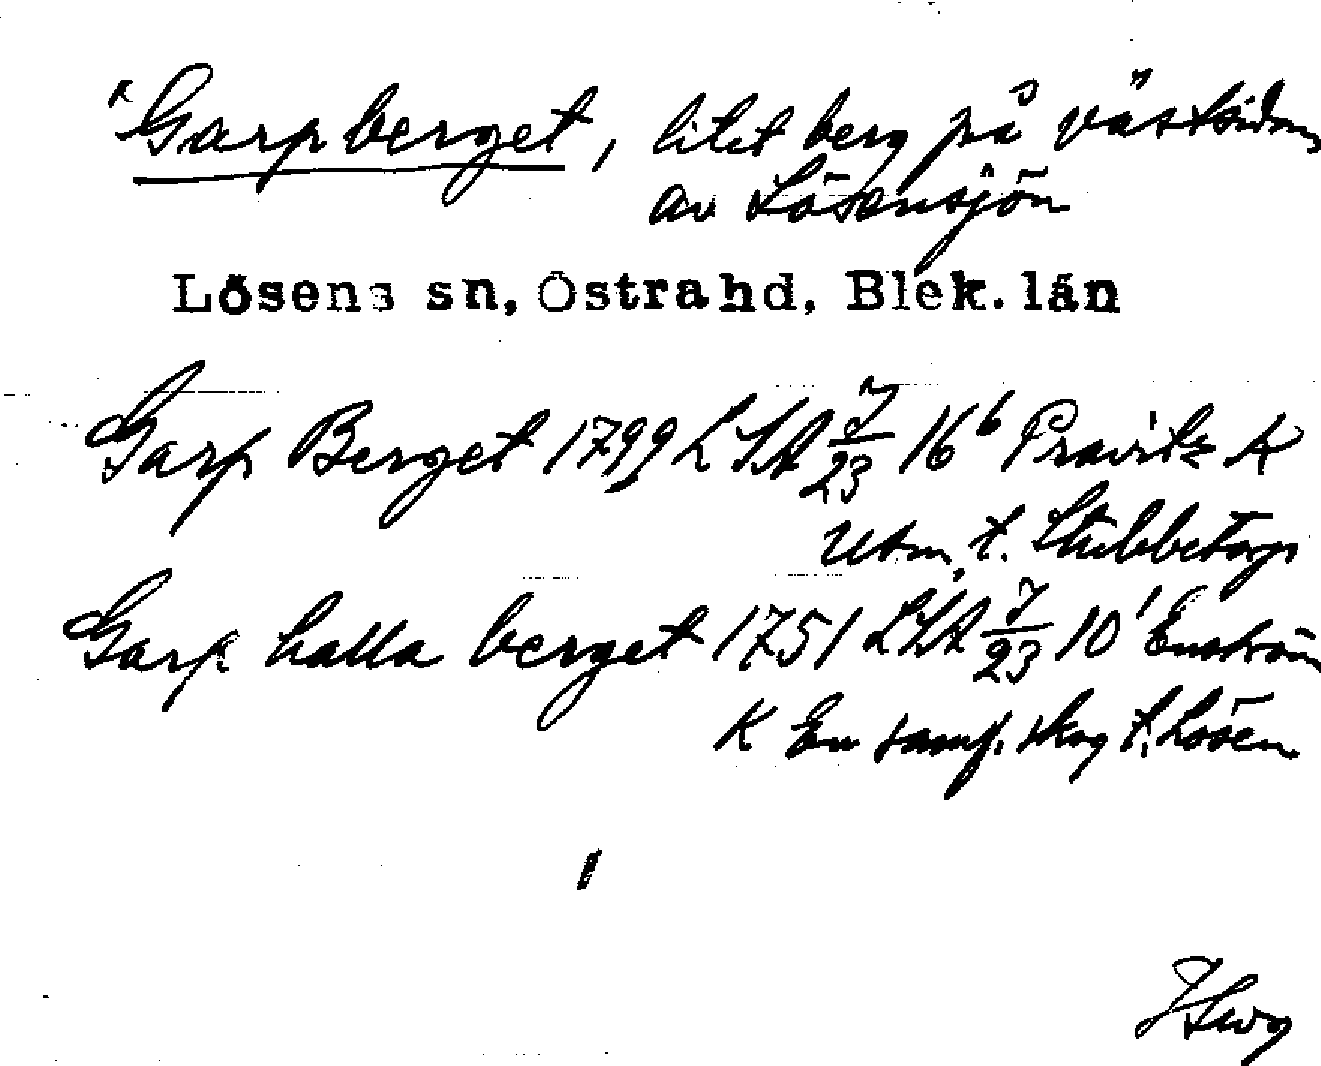 Garpberget, litet berg på västsidan
av Lösensjön
Lösens sn, Östra hd, Blek. län
Garp Berget 1799 LSA 7/23 16b Pravitz K
Utm. t. Stubbetorp
Garp halla berget 1751 LSA 7/23 10' Enström
K En samf. skog t. Lösen